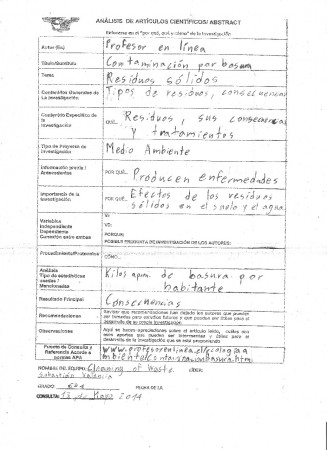 ANÁLISIS DE ARTÍCULOS CIENTÍFICOS/ ABSTRACT
Enfocarse en el "por qué, qué y cómo" de la investigación
Autor (Es) Profesor en línea
Título/Subtítulo Contaminación por basura
Tema Residuos sólidos
Contenidos Generales de La investigación Tipos de residuos, consecuencias
Contenido Específico de la investigación QUE.. Residuos, sus consecuencias
y tratamientos
Tipo de Proyecto de Investigación Medio Ambiente
Información previa / Antecedentes POR QUE.. Producen enfermedades
Importancia de la Investigación POR QUE.. Efectos de los residuos
sólidos en el suelo y el agua
Variables
Independiente
Dependiente
Conexión entre ambas
VI:
VD:
POSIBLE PREGUNTA DE INVESTIGACIÓN DE LOS AUTORES:
Procedimiento/Protocolos CÓMO...
Análisis
Tipo de estadísticas usadas /
Mencionadas
Kilos apm. de basura por
habitante
Resultado Principal Consecuencias
Recomendaciones
Revisar que recomendaciones han dejado los autores que pueden
ser tomadas para estudios futuros y que puedan ser útiles para el
desarrollo de su propia investigación
Observaciones
Aquí se harán apreciaciones sobre el artículo leído, cuáles son
esos aportes que pueden ser interesantes y útiles para el
desarrollo de la investigación que se está proponiendo.
Fuente de Consulta y
Referencia Acorde a
normas APA
www.profesorenlinea.cl/ecologia
ambiente/contaminacionbasura.htm
NOMBRE DEL EQUIPO: Cleaning of Waste LÍDER:
Sebastián Valencia
GRADO: FECHA DE LA
CONSULTA: Mayo 2014